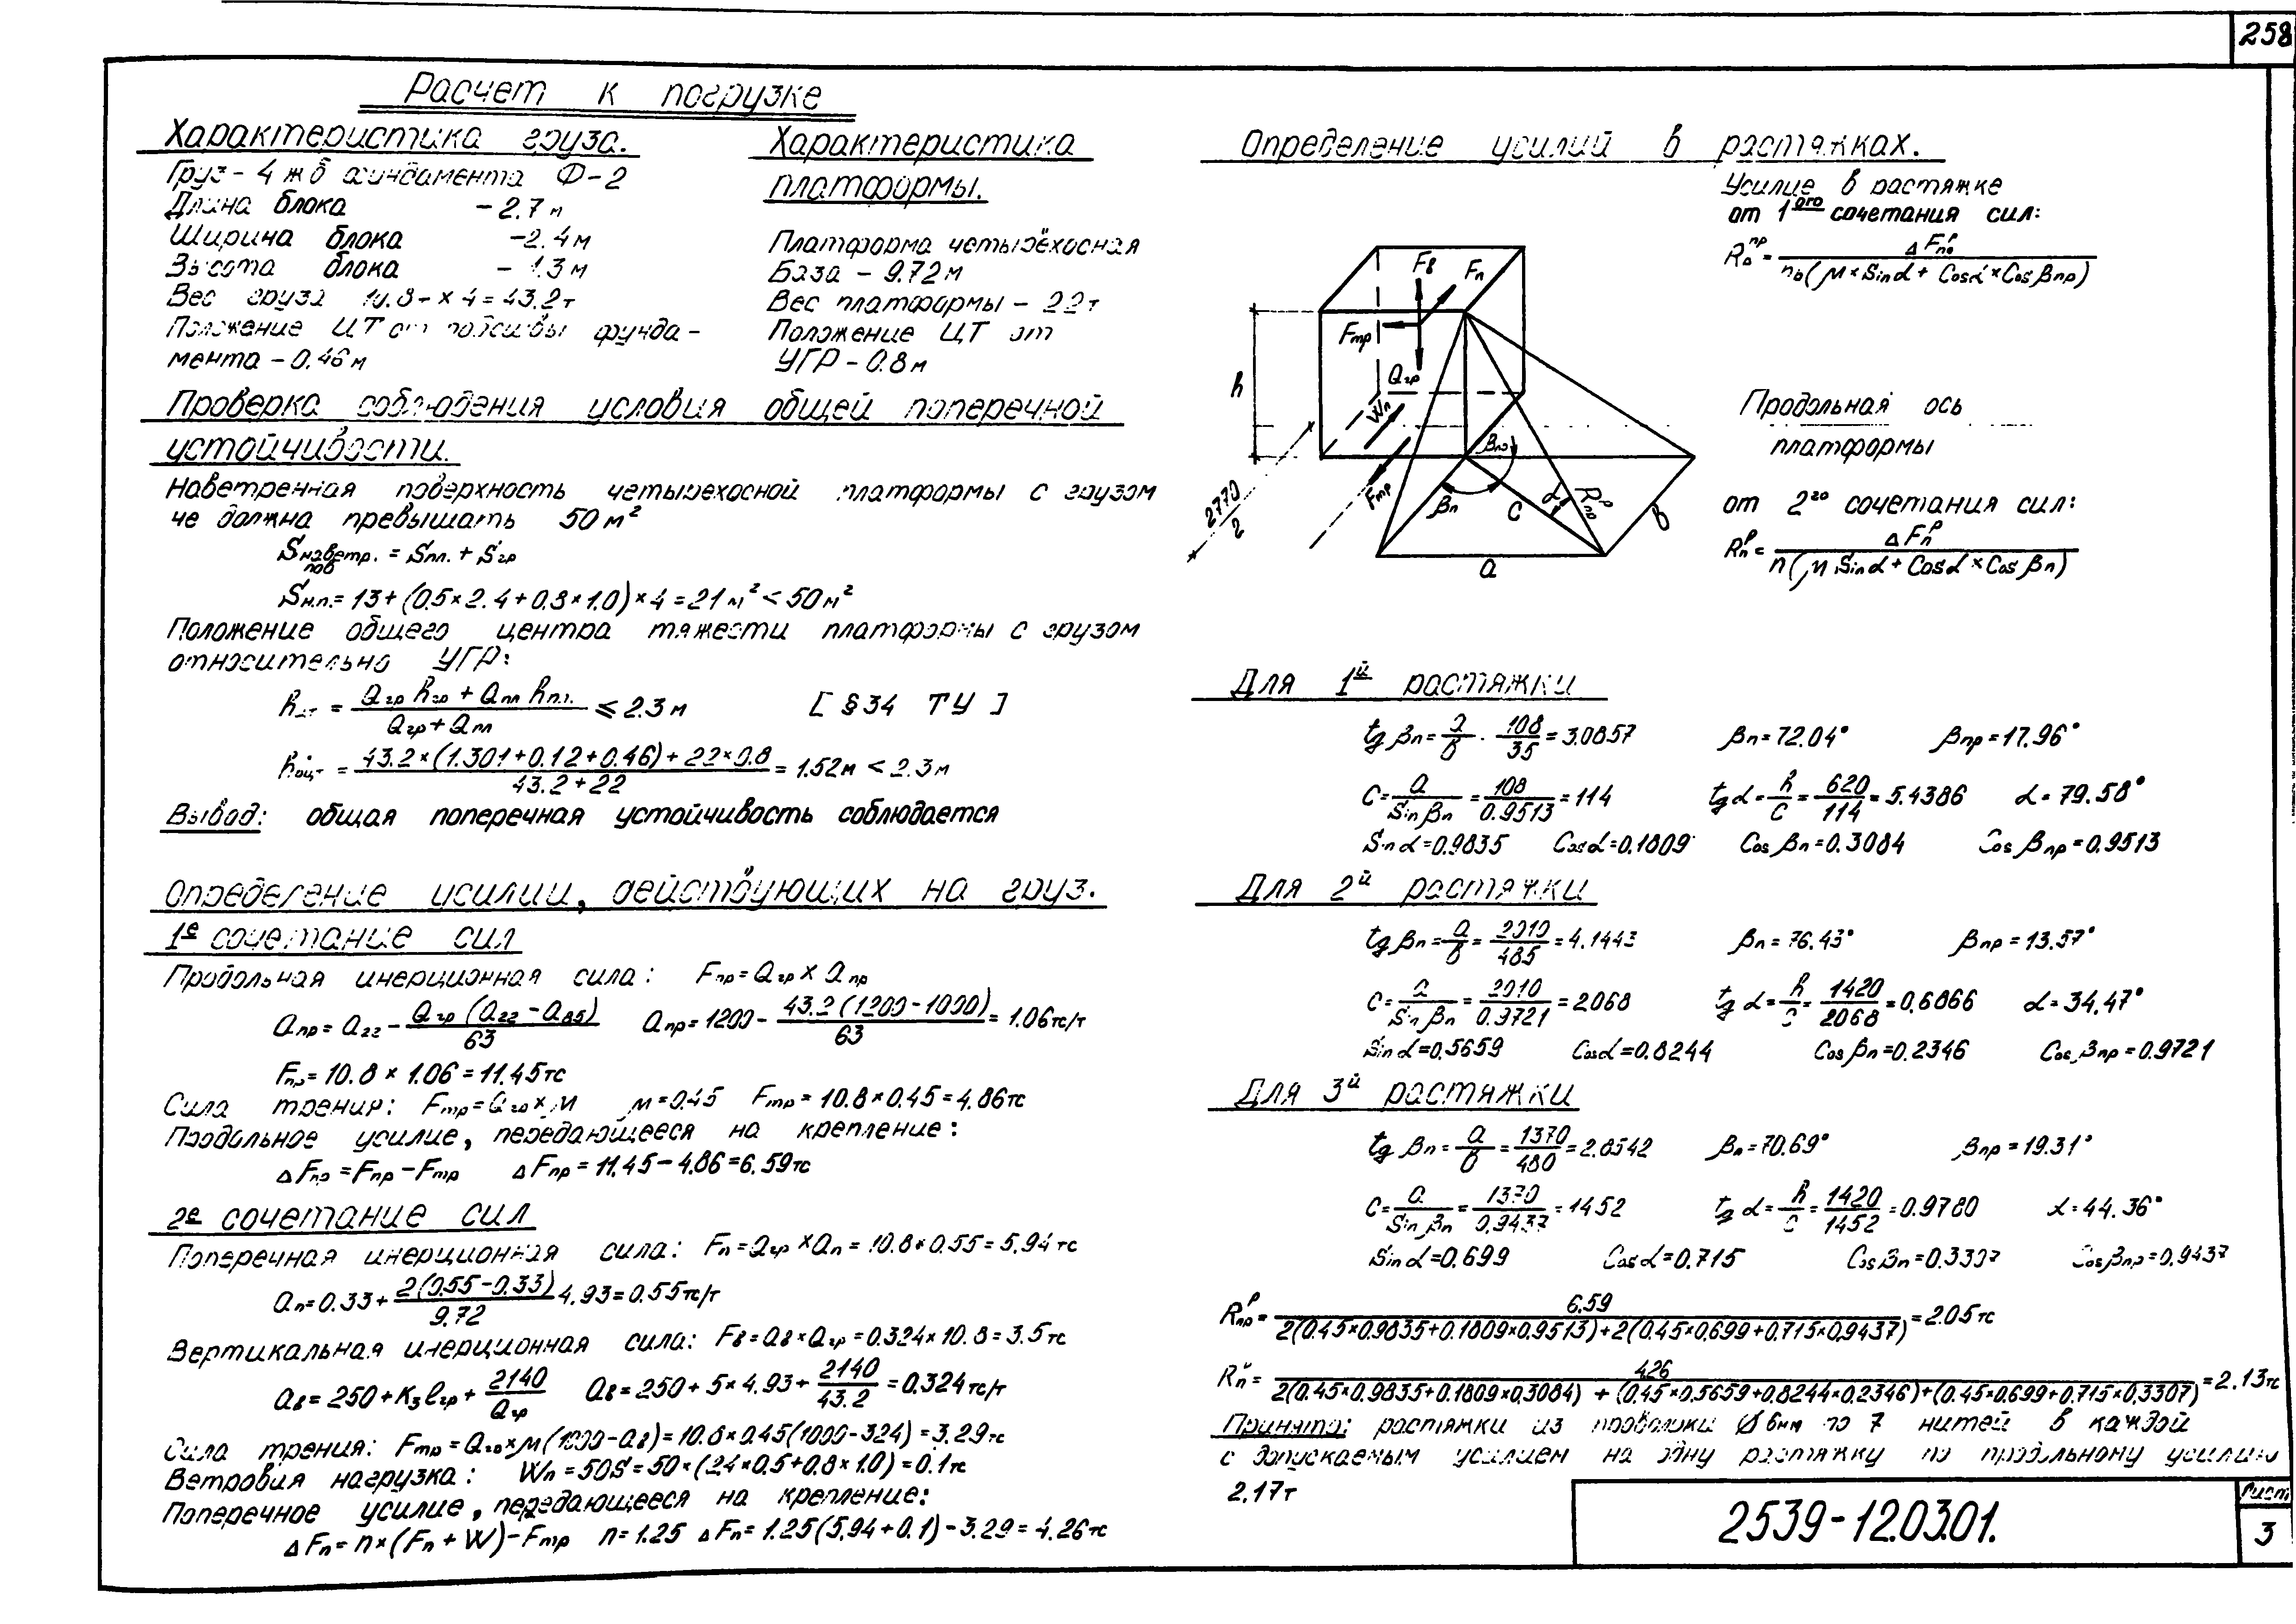 258
Расчет к погрузке
Характеристика груза.
Груз - 4 ж б фундамента Ф-2
Длина блока - 2.7 м
Ширина блока - 2.4 м
Высота блока - 1.3 м
Вес груза 10.8т × 4 = 43.2т
Положение ЦТ от подошвы фунда-
мента - 0.46 м
Характеристика
платформы.
Платформа четырёхосная
База - 9.72 м
Вес платформы - 22т
Положение ЦТ от
УГР - 0.8 м
Проверка соблюдения условия общей поперечной
устойчивости.
Наветренная поверхность четырехосной платформы с грузом
не должна превышать 50 м²
Sнаветр. пов = Sпл. + Sгр
Sн.п. = 13 + (0.5×2.4+0.8×1.0)×4 = 21 м² < 50 м²
Положение общего центра тяжести платформы с грузом
относительно УГР:
hцт = (Qгр hгр + Qпл hпл) / (Qгр + Qпл) ≤ 2.3 м [ §34 ТУ ]
hоцт = (43.2×(1.301+0.12+0.46)+22×0.8) / (43.2+22) = 1.52м < 2.3м
Вывод: общая поперечная устойчивость соблюдается
Определение усилии, действующих на груз.
1е сочетание сил
Продольная инерционная сила: Fпр = Qгр × aпр
aпр = a22 - Qгр (a22 - a85) / 63 aпр = 1200 - 43.2 (1200-1000) / 63 = 1.06тс/т
Fпр = 10.8 × 1.06 = 11.45тс
Сила трения: Fтр = Qгр × μ μ = 0.45 Fтр = 10.8×0.45 = 4.86тс
Продольное усилие, передающееся на крепление:
ΔFпр = Fпр - Fтр ΔFпр = 11.45 - 4.86 = 6.59тс
2е сочетание сил
Поперечная инерционная сила: Fп = Qгр × aп = 10.8×0.55 = 5.94тс
aп = 0.33 + 2(0.55-0.33) / 9.72 4.93 = 0.55тс/т
Вертикальная инерционная сила: Fв = aв × Qгр = 0.324×10.8 = 3.5тс
aв = 250 + K3 lгр + 2140 / Qгр aв = 250 + 5×4.93 + 2140 / 43.2 = 0.324тс/т
Сила трения: Fтр = Qгр×μ(1000-aв) = 10.8×0.45(1000-324) = 3.29тс
Ветровая нагрузка: Wп = 50S = 50×(2.4×0.5+0.8×1.0) = 0.1тс
Поперечное усилие, передающееся на крепление:
ΔFп = n×(Fп + W) - Fтр n = 1.25 ΔFп = 1.25(5.94+0.1) - 3.29 = 4.26тс
Определение усилий в растяжках.
Усилие в растяжке
от 1ого сочетания сил:
Rпр р = ΔFпр р / nв(μ × Sin α + Cos α × Cos βпр)
Fв
Fп
Fтр
Qгр
h
Wп
βпр
Fтр
βп
c
α
Rпр р
в
2770/2
a
Продольная ось
платформы
от 2го сочетания сил:
Rп р = ΔFп р / n(μ Sin α + Cos α × Cos βп)
Для 1й растяжки
tg βп = a/в = 108/35 = 3.0857 βп = 72.04° βпр = 17.96°
C = a / Sin βп = 108 / 0.9513 = 114 tg α = h/c = 620/114 = 5.4386 α = 79.58°
Sin α = 0.9835 Cos α = 0.1809 Cos βп = 0.3084 Cos βпр = 0.9513
Для 2й растяжки
tg βп = a/в = 2010/485 = 4.1443 βп = 76.43° βпр = 13.57°
C = a / Sin βп = 2010 / 0.9721 = 2068 tg α = h/c = 1420/2068 = 0.6866 α = 34.47°
Sin α = 0.5659 Cos α = 0.8244 Cos βп = 0.2346 Cos βпр = 0.9721
Для 3й растяжки
tg βп = a/в = 1370/480 = 2.8542 βп = 70.69° βпр = 19.31°
C = a / Sin βп = 1370 / 0.9437 = 1452 tg α = h/c = 1420/1452 = 0.9780 α = 44.36°
Sin α = 0.699 Cos α = 0.715 Cos βп = 0.3307 Cos βпр = 0.9437
Rпр р = 6.59 / 2(0.45×0.9835+0.1809×0.9513)+2(0.45×0.699+0.715×0.9437) = 2.05тс
Rп = 4.26 / 2(0.45×0.9835+0.1809×0.3084) + (0.45×0.5659+0.8244×0.2346)+(0.45×0.699+0.715×0.3307) = 2.13тс
Принято: растяжки из проволоки Ø 6мм по 7 нитей в каждой
с допускаемым усилием на одну растяжку по продольному усилию
2.17т
2539-12.03.01.
Лист
3